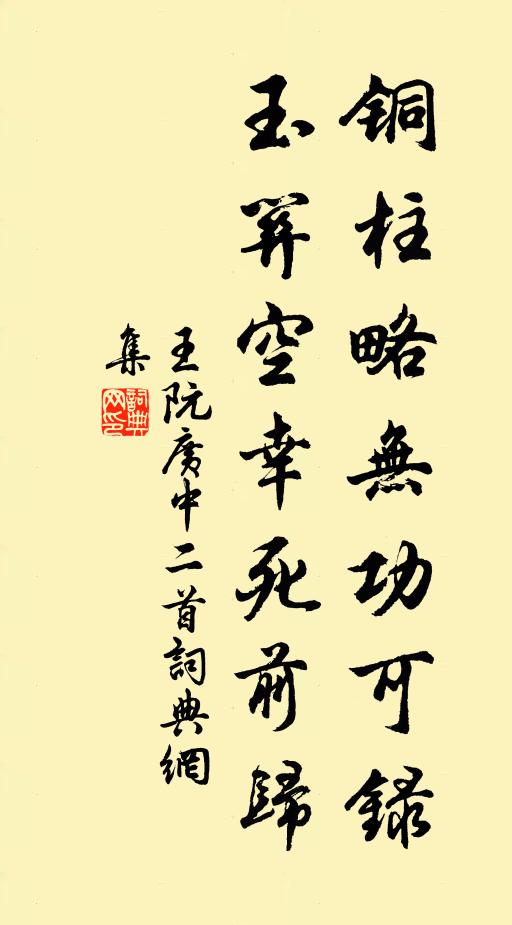 銅柱略無功可録
玉關空幸死前歸
王阮廣中二首詞典網
集
詞典
网印